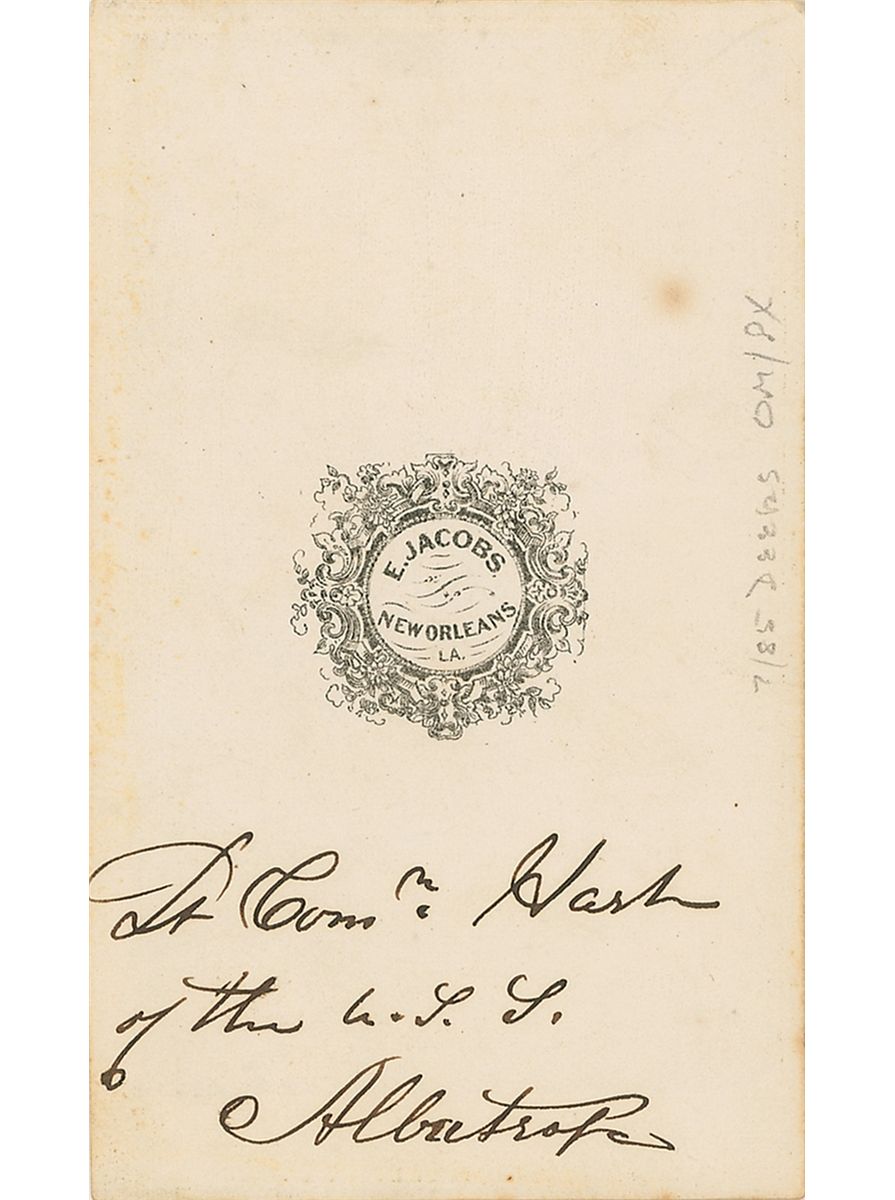 E. JACOBS.
NEW ORLEANS
LA.
Lt Comr. Hart
of the U.S.S.
Albatross
7/85 OM/PX